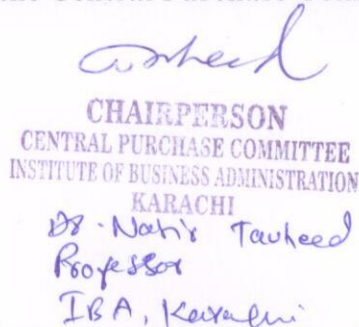 CHAIRPERSON
CENTRAL PURCHASE COMMITTEE
INSTITUTE OF BUSINESS ADMINISTRATION
KARACHI
Dr. Nasir Tauheed
Professor
IBA, Karachi